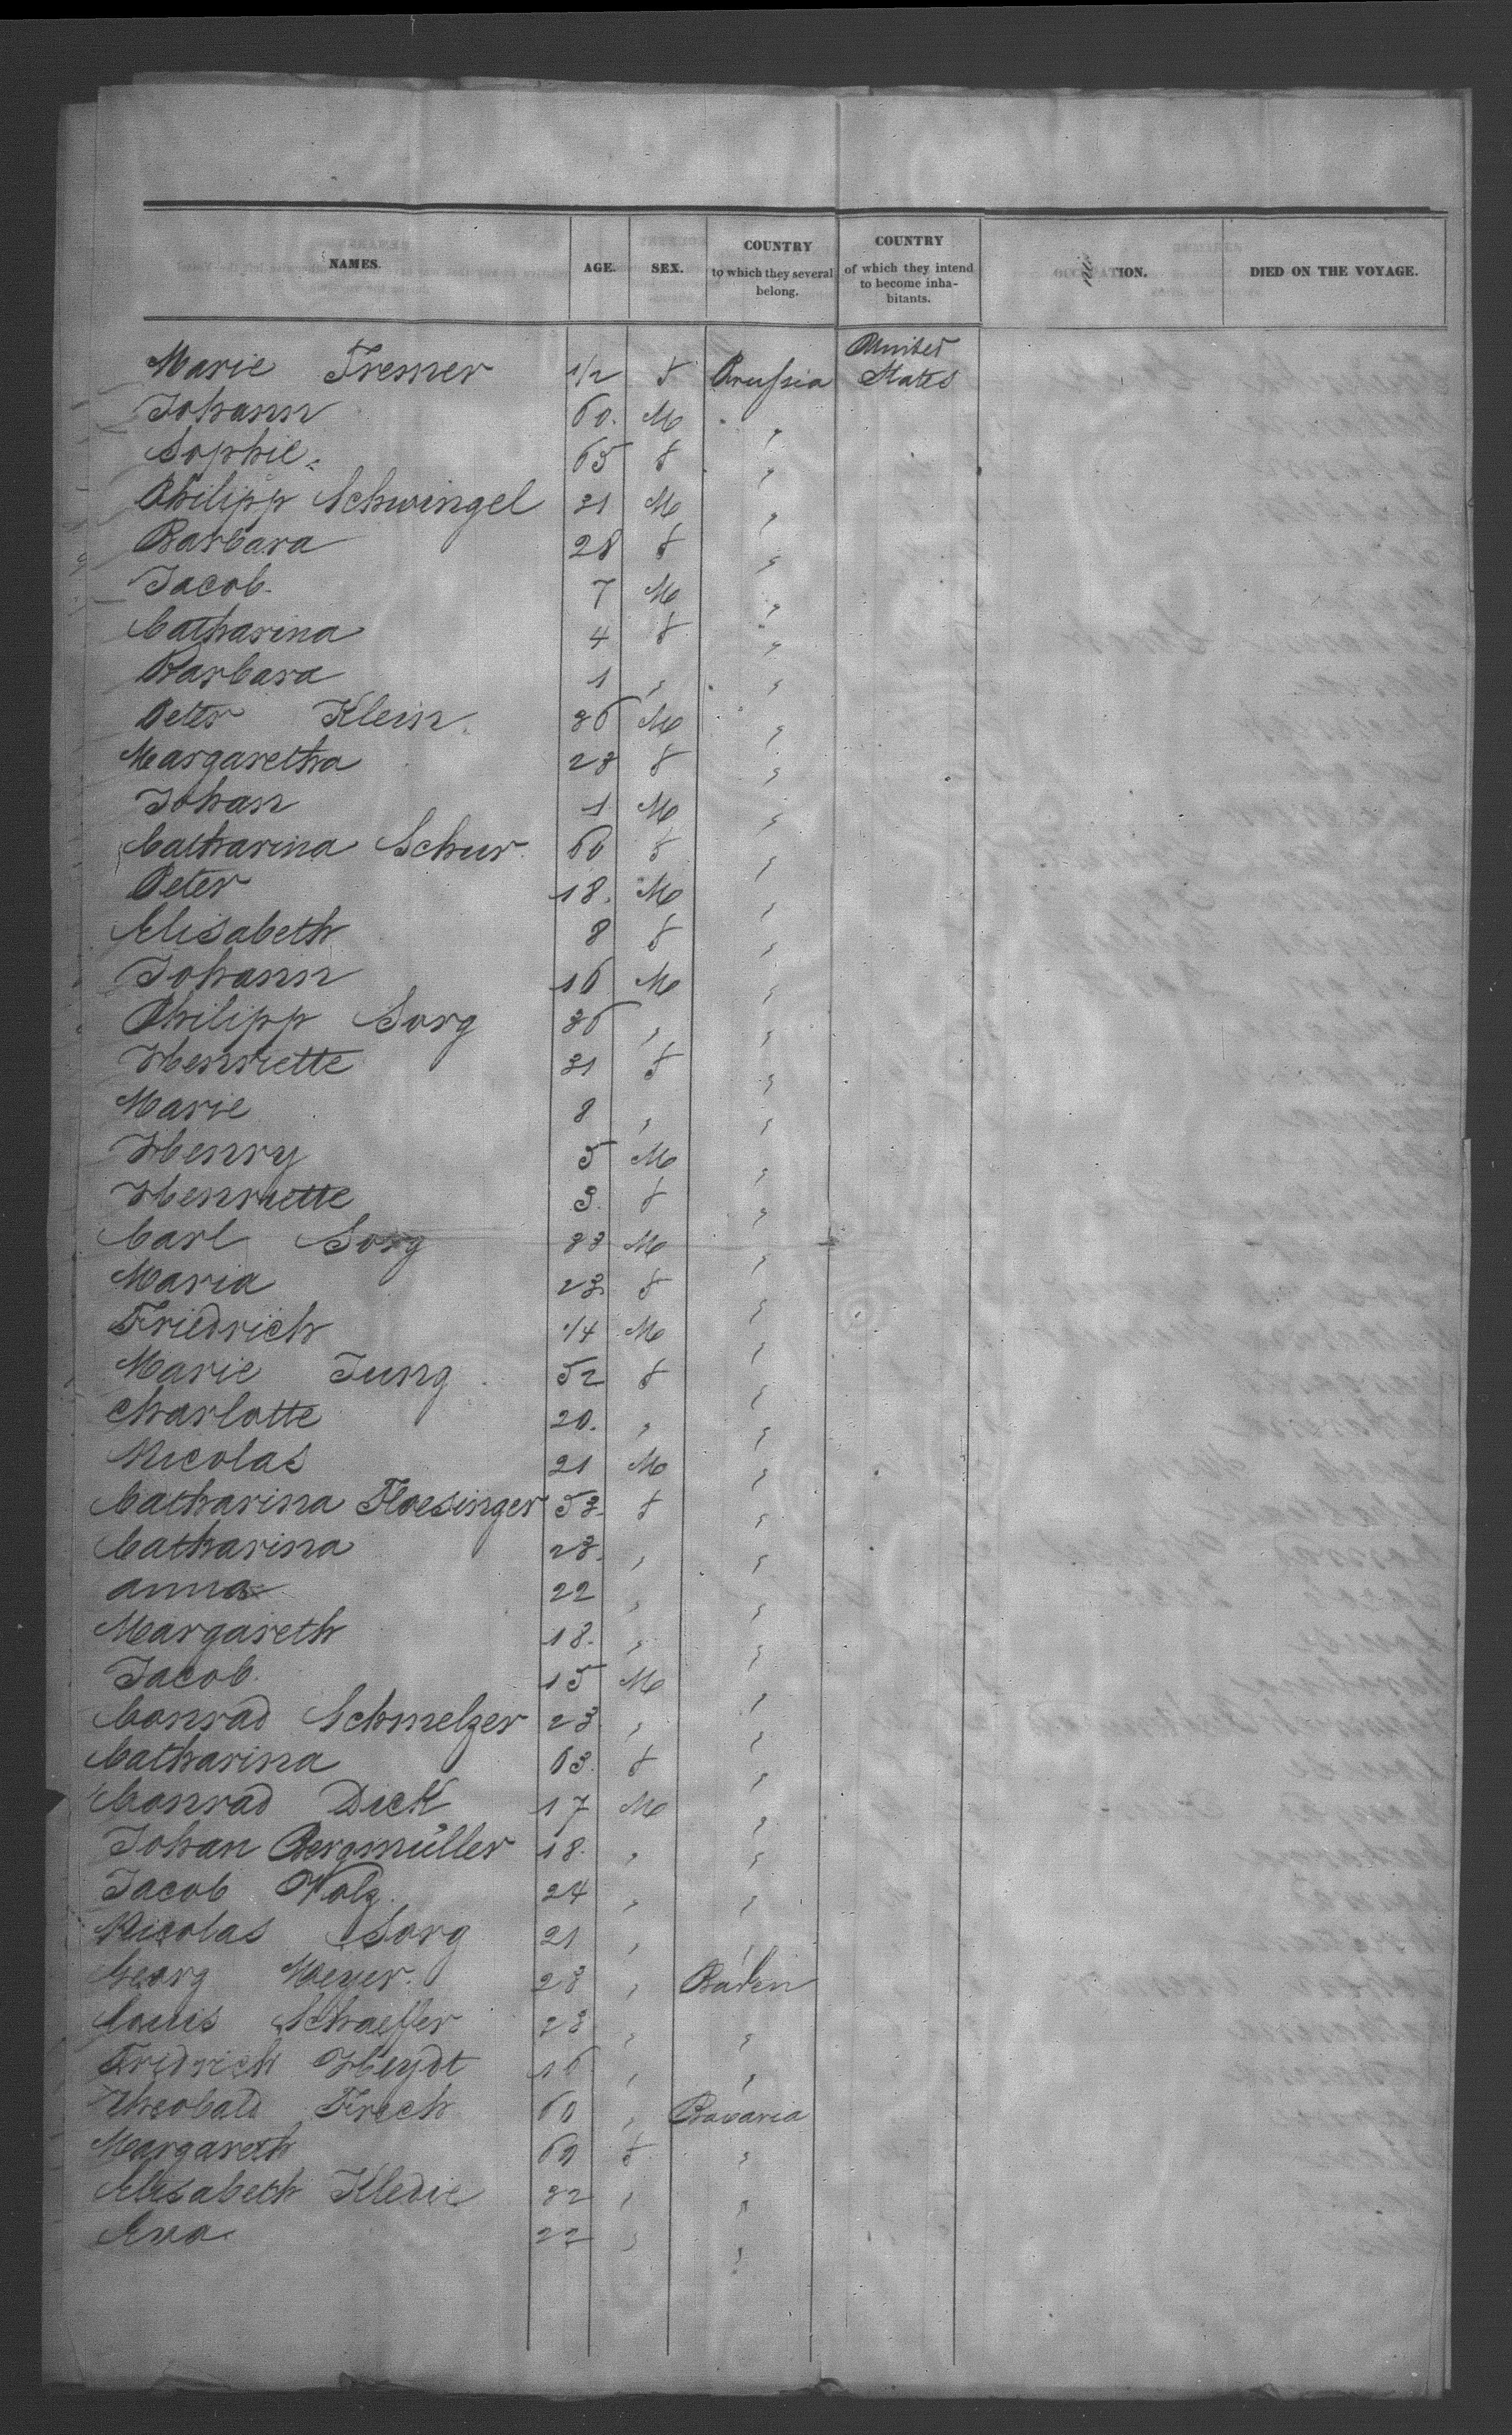 NAMES. AGE. SEX. COUNTRY to which they several belong. COUNTRY of which they intend to become inhabitants. OCCUPATION. DIED ON THE VOYAGE.
Marie Fresner 1/2 F Prussia United States
Johann 60. M "
Sophie. 65 F "
Philipp Schwingel 31 M "
Barbara 28 F "
Jacob. 7 M "
Catharina 4 F "
Barbara 1 " "
Peter Klein. 36 M "
Margaretha 28 F "
Johan 1 M "
Catharina Schur. 60 F "
Peter 18. M "
Elisabeth 8 F "
Johann 16 M "
Philipp Sorg 36 " "
Henriette 31 F "
Marie 8 " "
Henry 5 M "
Henriette 3. F "
Carl Sorg 33 M "
Maria 23 F "
Friedrich 1/4 M "
Marie Jung. 52 F "
Charlotte 20. " "
Nicolas 21 M "
Catharina Floesinger 53. F "
Catharina 23. " "
Anna 22 " "
Margareth 18. " "
Jacob. 15 M "
Conrad Schmelzer 23 " "
Catharina 63. F "
Conrad Dick 17 M "
Johan Bergmüller 18. " "
Jacob Volz. 24 " "
Nicolas Sorg 21 " "
Georg Meyer. 28 " Baden
Louis Schaeffer 23 " "
Fridrich Heydt 16 " "
Theobald Frech 60 " Bavaria
Margareth 69 F "
Elisabeth Kledie 32 " "
Eva 22 " "